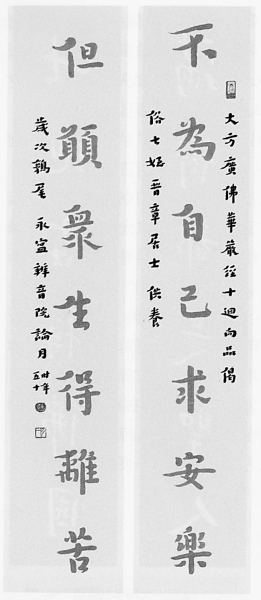 大方廣佛華嚴經十迴向品偈
不為自己求安樂
俗七姪晉章居士供養
但願衆生得離苦
歲次鶉尾 永寧辨音院論月 時年五十